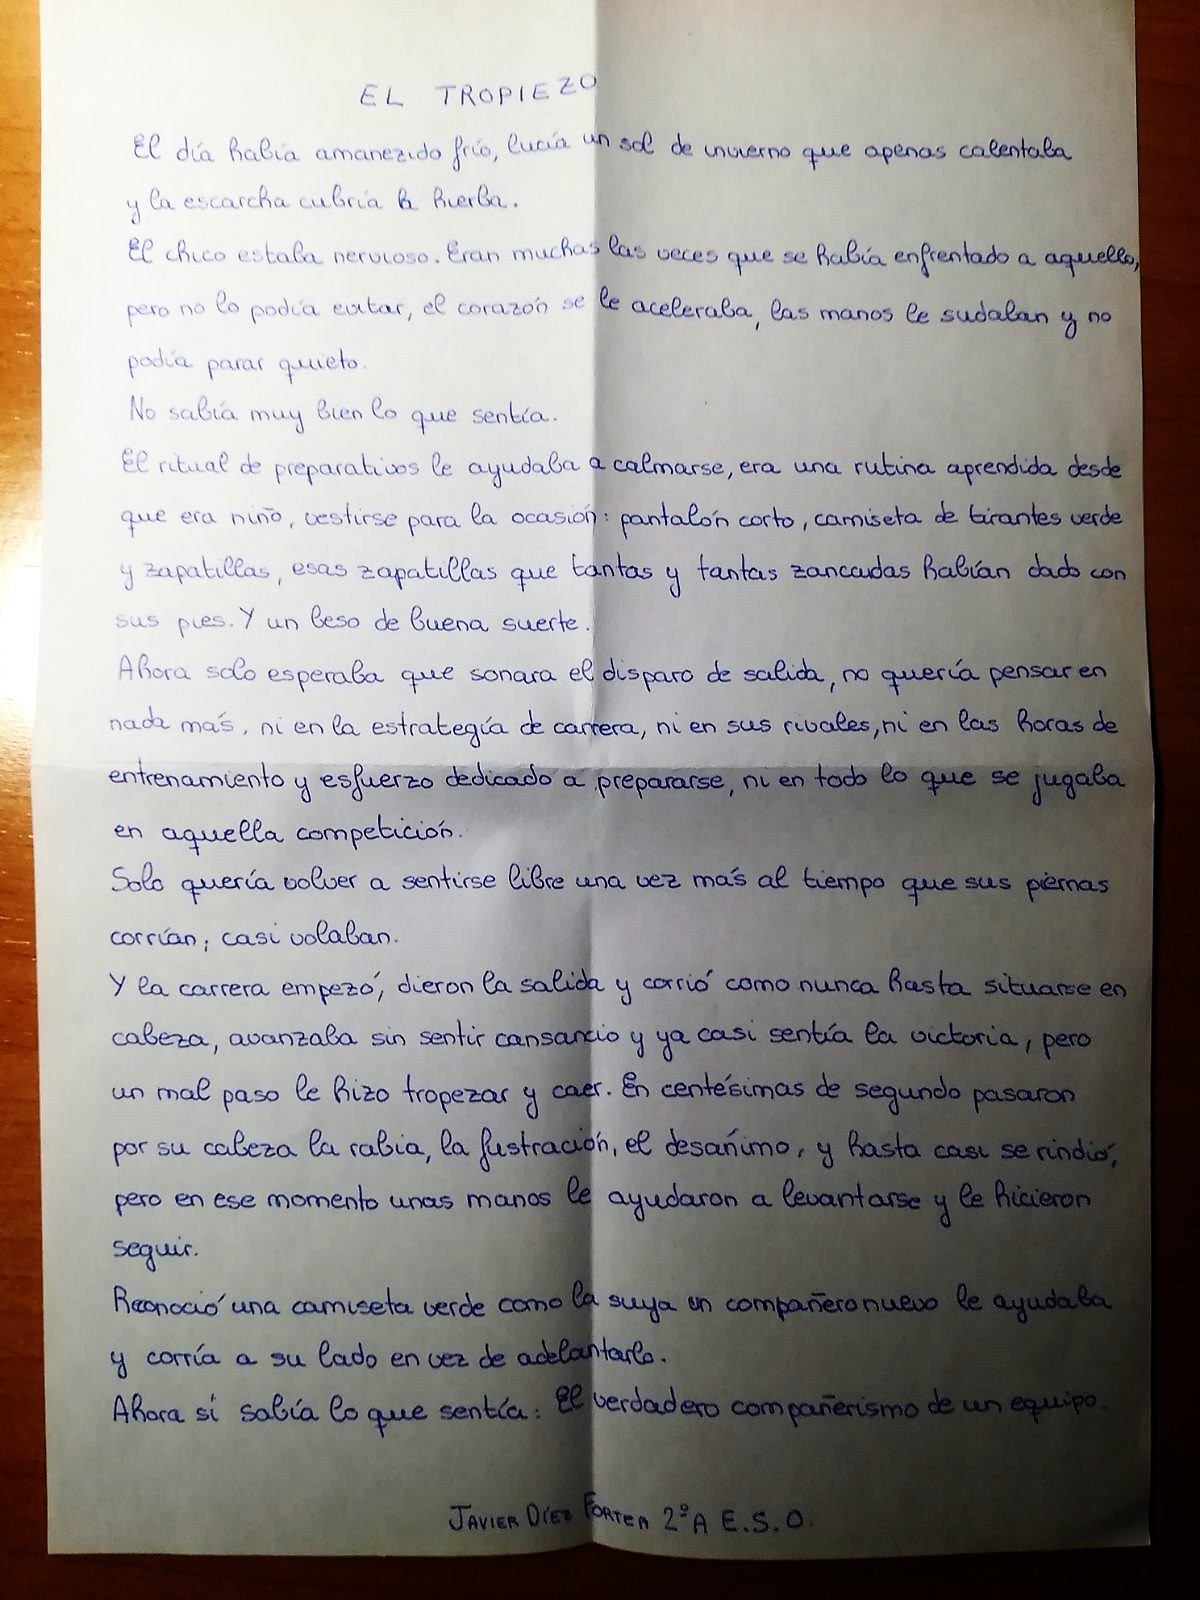 EL TROPIEZO
El día había amanezido frío, lucía un sol de invierno que apenas calentaba
y la escarcha cubría la hierba.
El chico estaba nervioso. Eran muchas las veces que se había enfrentado a aquello,
pero no lo podía evitar, el corazón se le aceleraba, las manos le sudaban y no
podía parar quieto.
No sabía muy bien lo que sentía.
El ritual de preparativos le ayudaba a calmarse, era una rutina aprendida desde
que era niño, vestirse para la ocasión: pantalón corto, camiseta de tirantes verde
y zapatillas, esas zapatillas que tantas y tantas zancadas habían dado con
sus pies. Y un beso de buena suerte.
Ahora solo esperaba que sonara el disparo de salida, no quería pensar en
nada más, ni en la estrategía de carrera, ni en sus rivales, ni en las horas de
entrenamiento y esfuerzo dedicado a prepararse, ni en todo lo que se jugaba
en aquella competición.
Solo quería volver a sentirse libre una vez más al tiempo que sus piernas
corrían; casi volaban.
Y la carrera empezó, dieron la salida y corrió como nunca hasta situarse en
cabeza, avanzaba sin sentir cansancio y ya casi sentía la victoria, pero
un mal paso le hizo tropezar y caer. En centésimas de segundo pasaron
por su cabeza la rabia, la fustración, el desánimo, y hasta casi se rindió,
pero en ese momento unas manos le ayudaron a levantarse y le hicieron
seguir.
Reconoció una camiseta verde como la suya un compañero nuevo le ayudaba
y corría a su lado en vez de adelantarlo.
Ahora sí sabía lo que sentía: El verdadero compañerismo de un equipo.
JAVIER DÍEZ 2º A E.S.O.